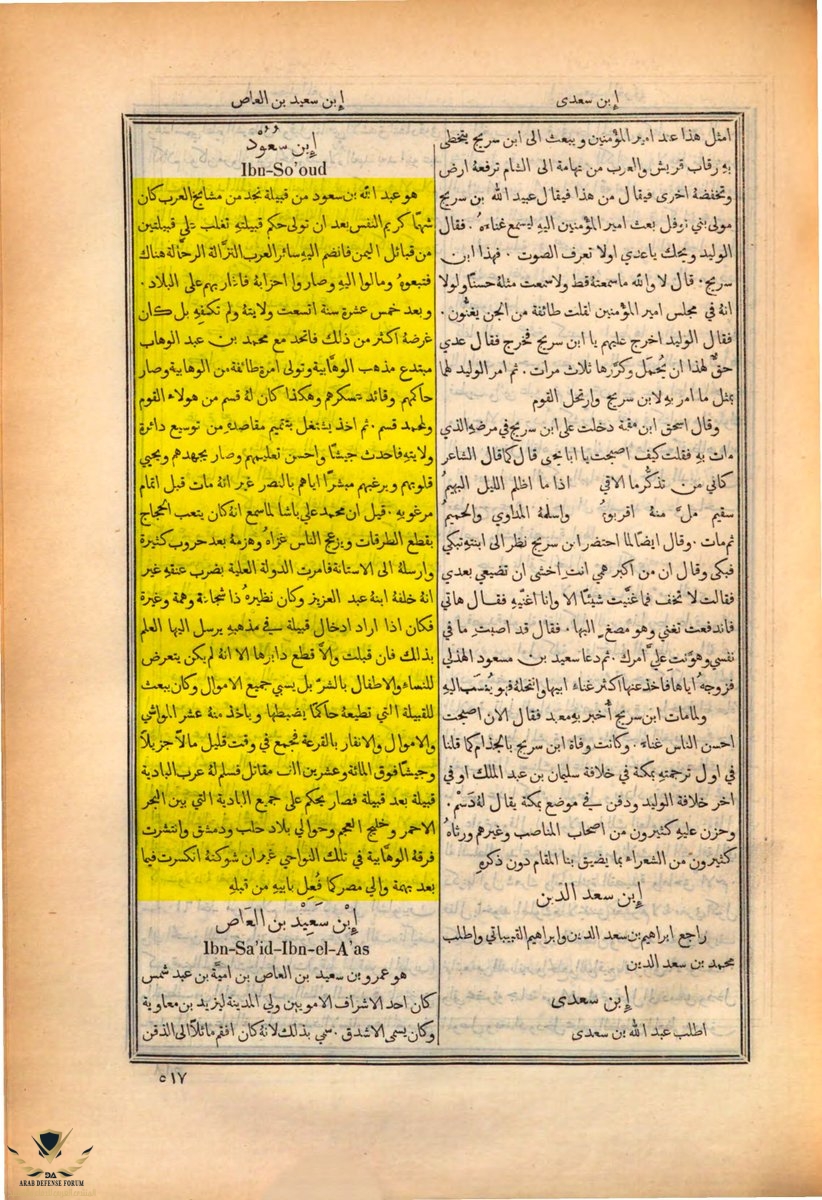 إبن سعدى
إبن سعيد بن العاص
امثل هذا عند امير المؤمنين ويبعث الى ابن سريج يتخطى
به رقاب قريش والعرب من تهامة الى الشام ترفعهُ ارض
وتخفضهُ اخرى فيقال من هذا فيقال عبيد الله بن سريج
مولى بني نوفل بعث امير المؤمنين اليه ليسمع غناءهُ . فقال
الوليد ويحك ياعدي اولا تعرف الصوت . فهذا ابن
سريج . قال لا والله ما سمعتهُ قط ولا سمعت مثلهُ حسنًا ولولا
انهُ في مجلس امير المؤمنين لقلت طائفة من الجن يغنُّون .
فقال الوليد اخرج عليهم يا ابن سريج فخرج فقال عدي
حقٌّ لهذا ان يُحمَل وكرَّرها ثلاث مرات . ثم امر الوليد لهما
بمثل ما امر به لابن سريج وارتحل القوم
وقال اسحق ابن مقمة دخلت على ابن سريج في مرضهِ الذي
مات بهِ فقلت كيف اصبحت يا ابا يحيى قال كما قال الشاعر
كاني من تذكُّر ما الاقي اذا ما اظلم الليل البهيمُ
سقيم ملَّ منهُ اقربوهُ واسلمهُ المداوي والحميمُ
ثم مات . وقال ايضًا لما احتضر ابن سريج نظر الى ابنتهِ تبكي
فبكى وقال ان من اكبر همي انتِ اخشى ان تضيعي بعدي
فقالت لا تخف فما غنَّيت شيئًا الا وانا اغنّيهِ فقال هاتي
فاندفعت تغني وهو مصغٍ اليها . فقال قد اصبتِ ما في
نفسي وهوَّنتِ عليَّ امرك . ثم دعا سعيد بن مسعود الهذلي
فزوجهُ اياها فاخذ عنها اكثر غناء ابيها وانتحلهُ فهو يُنسَب اليهِ
ولما مات ابن سريج أُخبر بهِ معبد فقال الان اصبحت
احسن الناس غناء . وكانت وفاة ابن سريج بالجذام كما قلنا
في اول ترجمتهِ بمكة في خلافة سليمان بن عبد الملك او في
اخر خلافة الوليد ودفن في موضع بمكة يقال لهُ دَسَمْ .
وحزن عليهِ كثيرون من اصحاب المناصب وغيرهم ورثاهُ
كثيرون من الشعراء بما يضيق بنا المقام دون ذكرهِ
إبن سعد الدين
راجع ابراهيم بن سعد الدين وابراهيم القبيباتي واطلب
محمد بن سعد الدين
إبن سعدى
اطلب عبد الله بن سعدى
إبن سُعُوْد
Ibn-So'oud
هو عبد الله بن سعود من قبيلة نجد من مشايخ العرب كان
شهمًا كريم النفس بعد ان تولى حكم قبيلتهِ تغلب على قبيلتين
من قبائل اليمن فانضم اليهِ سائر العرب النزَّالة الرحَّالة هناك
فتبعوهُ ومالوا اليهِ وصاروا احزابهُ فاغار بهم على البلاد .
وبعد خمس عشرة سنة اتسعت ولايتهُ ولم تكفهِ بل كان
غرضهُ اكثر من ذلك فاتحد مع محمد بن عبد الوهاب
مبتدع مذهب الوهَّابية وتولى امرة طائفة من الوهابية وصار
حاكمهم وقائد عسكرهم وهكذا كان لهُ قسم من هولاء القوم
ولمحمد قسم . ثم اخذ يشتغل بتتميم مقاصدهِ من توسيع دائرة
ولايتهِ فاحدث جيشًا واحسن تعليمهم وصار يجهدهم ويحيي
قلوبهم ويرغبهم مبشرًا اياهم بالنصر غير انهُ مات قبل اتمام
مرغوبهِ . قيل ان محمد علي باشا لما سمع انهُ كان يتعب الحجاج
بقطع الطرقات ويزعج الناس غزاهُ وهزمهُ بعد حروب كثيرة
وارسلهُ الى الاستانة فامرت الدولة العلية بضرب عنقهِ غير
انهُ خلفهُ ابنهُ عبد العزيز وكان نظيرهُ ذا شجاعة وهمة وغيرة
فكان اذا اراد ادخال قبيلة في مذهبهِ يرسل اليها العلم
بذلك فان قبلت والَّا قطع دابرها الا انهُ لم يكن يتعرض
للنساء والاطفال بالشرّ بل يسبي جميع الاموال وكان يبعث
للقبيلة التي تطيعهُ حاكمًا يضبطها وياخذ منهُ عشر المواشي
والاموال والانفار بالقرعة فجمع في وقت قليل مالًا جزيلًا
وجيشًا فوق المائة وعشرين الف مقاتل فسلم لهُ عرب البادية
قبيلة بعد قبيلة فصار يحكم على جميع البادية التي بين البحر
الاحمر وخليج العجم وحوالي بلاد حلب ودمشق وانتشرت
فرقة الوهَّابية في تلك النواحي غير ان شوكتهُ انكسرت فيما
بعد بهمة والي مصر كما فُعِل بابيهِ من قبلهِ
إِبْن سَعِيْد بن العَاص
Ibn-Sa'id-Ibn-el-A'as
هو عمرو بن سعيد بن العاص بن اميَّة بن عبد شمس
كان احد الاشراف الامويين ولي المدينة ليزيد بن معاوية
وكان يسمى الاشدق . سمي بذلك لانهُ كان افقم مائلًا الى الذقن
٥١٧
DA
ARAB DEFENSE FORUM